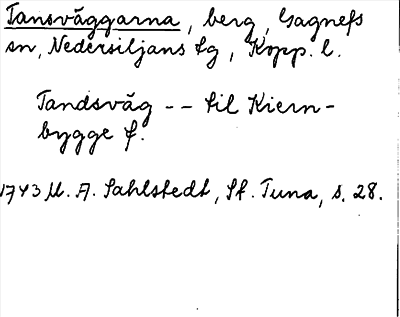 Tansväggarna, berg, Gagnefs
sn, Nedersiljans tg, Kopp. l.
Tandsväg -- til Kiern-
bygge f.
1743 M. A. Sahlstedt, St. Tuna, s. 28.